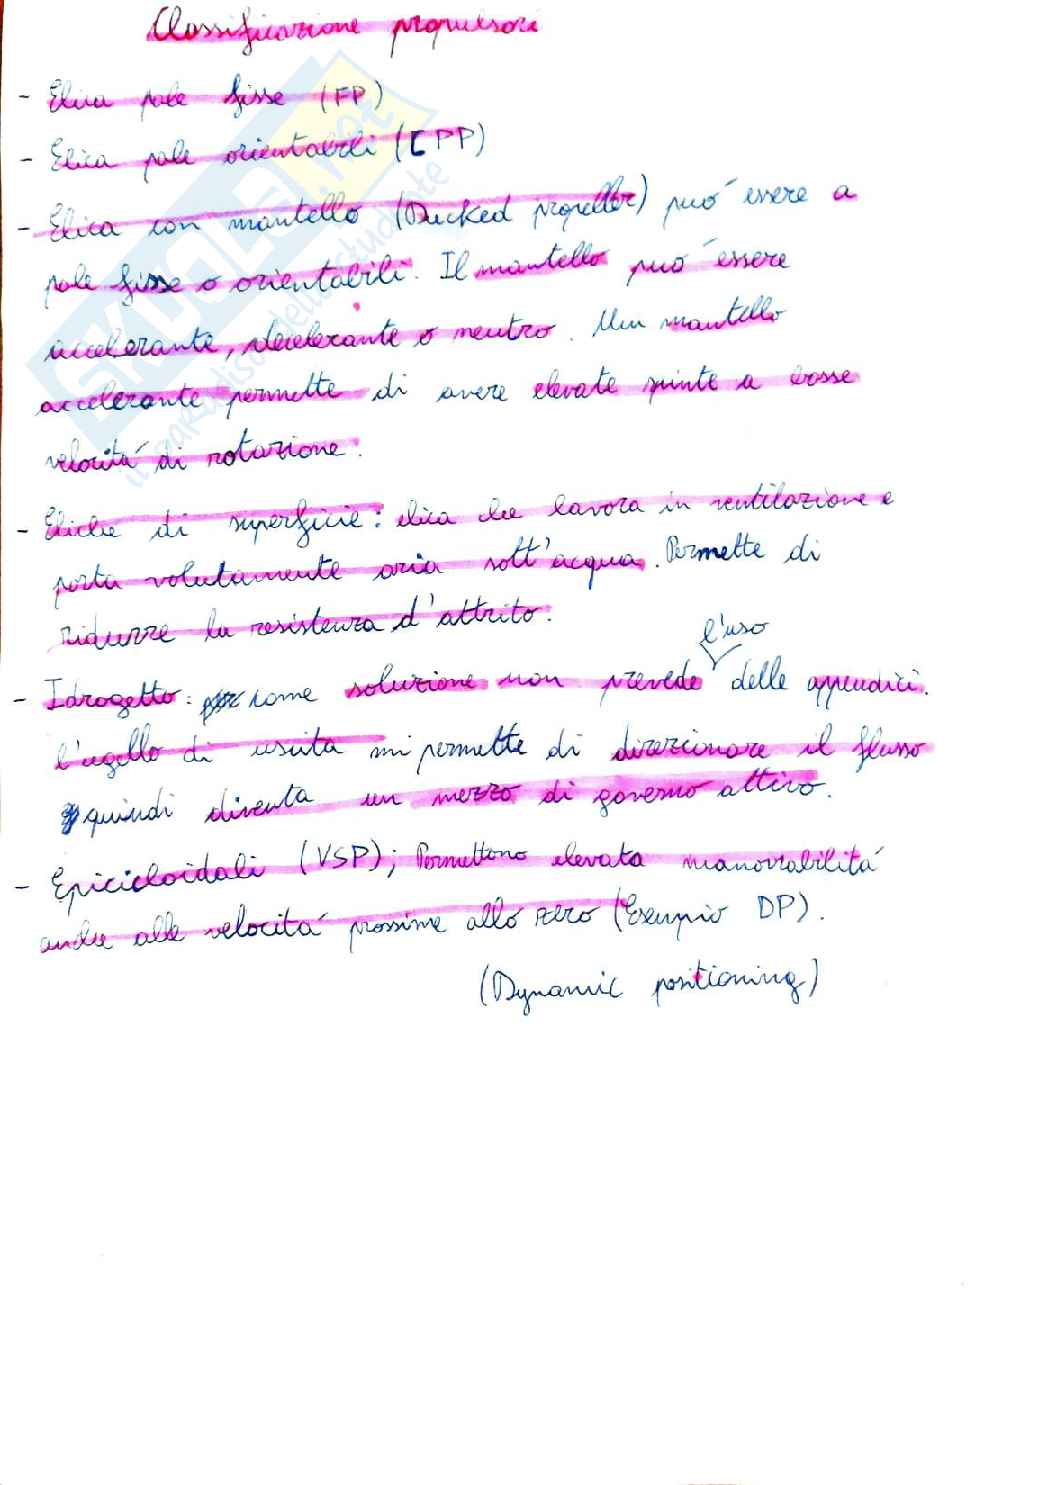 Classificazione propulsori
- Elica pale fisse (FP)
- Elica pale orientabili (CPP)
- Elica con mantello (Ducked propeller) puó essere a
pale fisse o orientabili. Il mantello puó essere
accelerante, decelerante o neutro. Un mantello
accelerante permette di avere elevate spinte a basse
velocitá di rotazione.
- Eliche di superficie: elica che lavora in ventilazione e
porta volutamente aria sott'acqua. Permette di
ridurre la resistenza d'attrito.
- Idrogetto: come soluzione non prevede l'uso delle appendici.
l'ugello di uscita mi permette di direzionare il flusso
quindi diventa un mezzo di governo attivo.
- Epicicloidali (VSP); Permettono elevata manovrabilitá
anche alle velocitá prossime allo zero (Esempio DP).
(Dynamic positioning)
SKUOLA.net
il paradiso dello studente